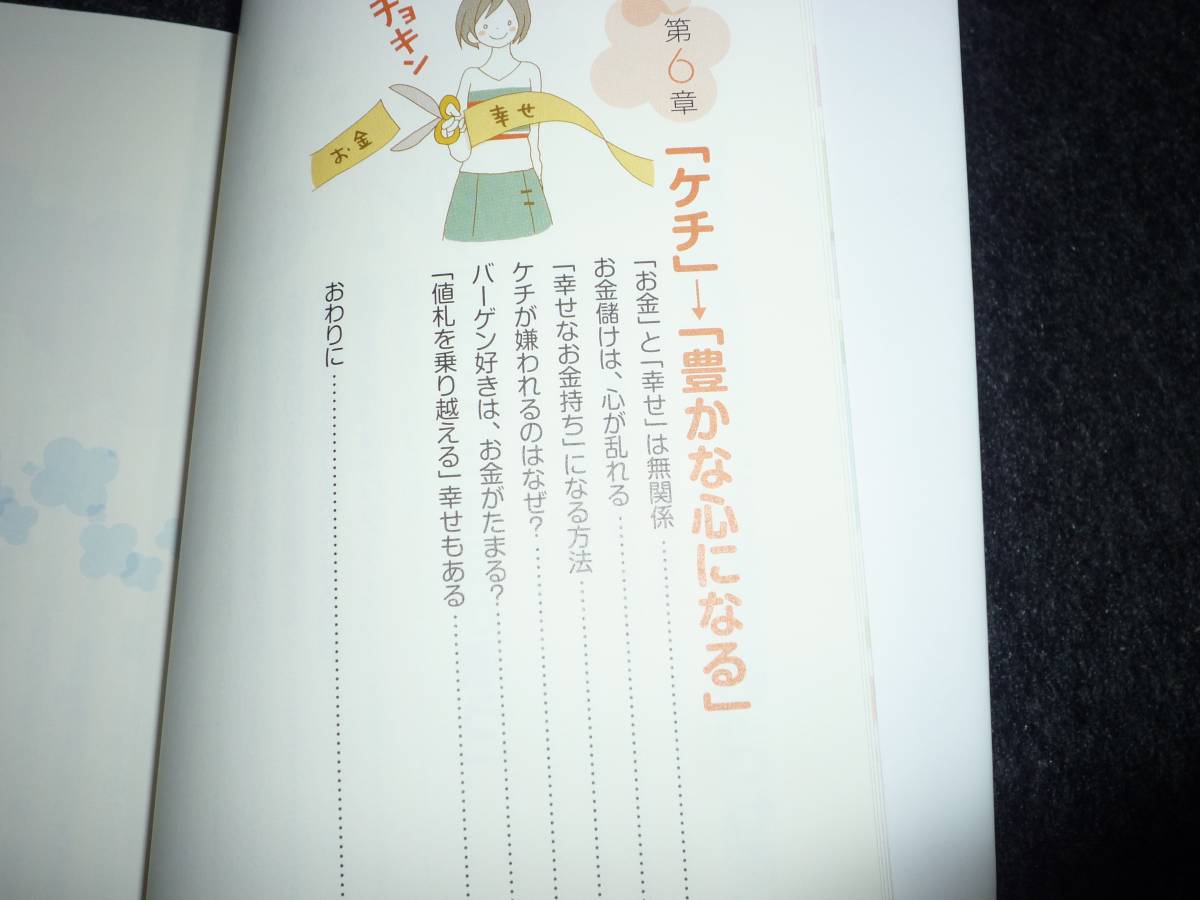 第6章
「ケチ」→「豊かな心になる」
「お金」と「幸せ」は無関係
お金儲けは、心が乱れる
「幸せなお金持ち」になる方法
ケチが嫌われるのはなぜ?
バーゲン好きは、お金がたまる?
「値札を乗り越える」幸せもある
おわりに
チョキン
お金
幸せ